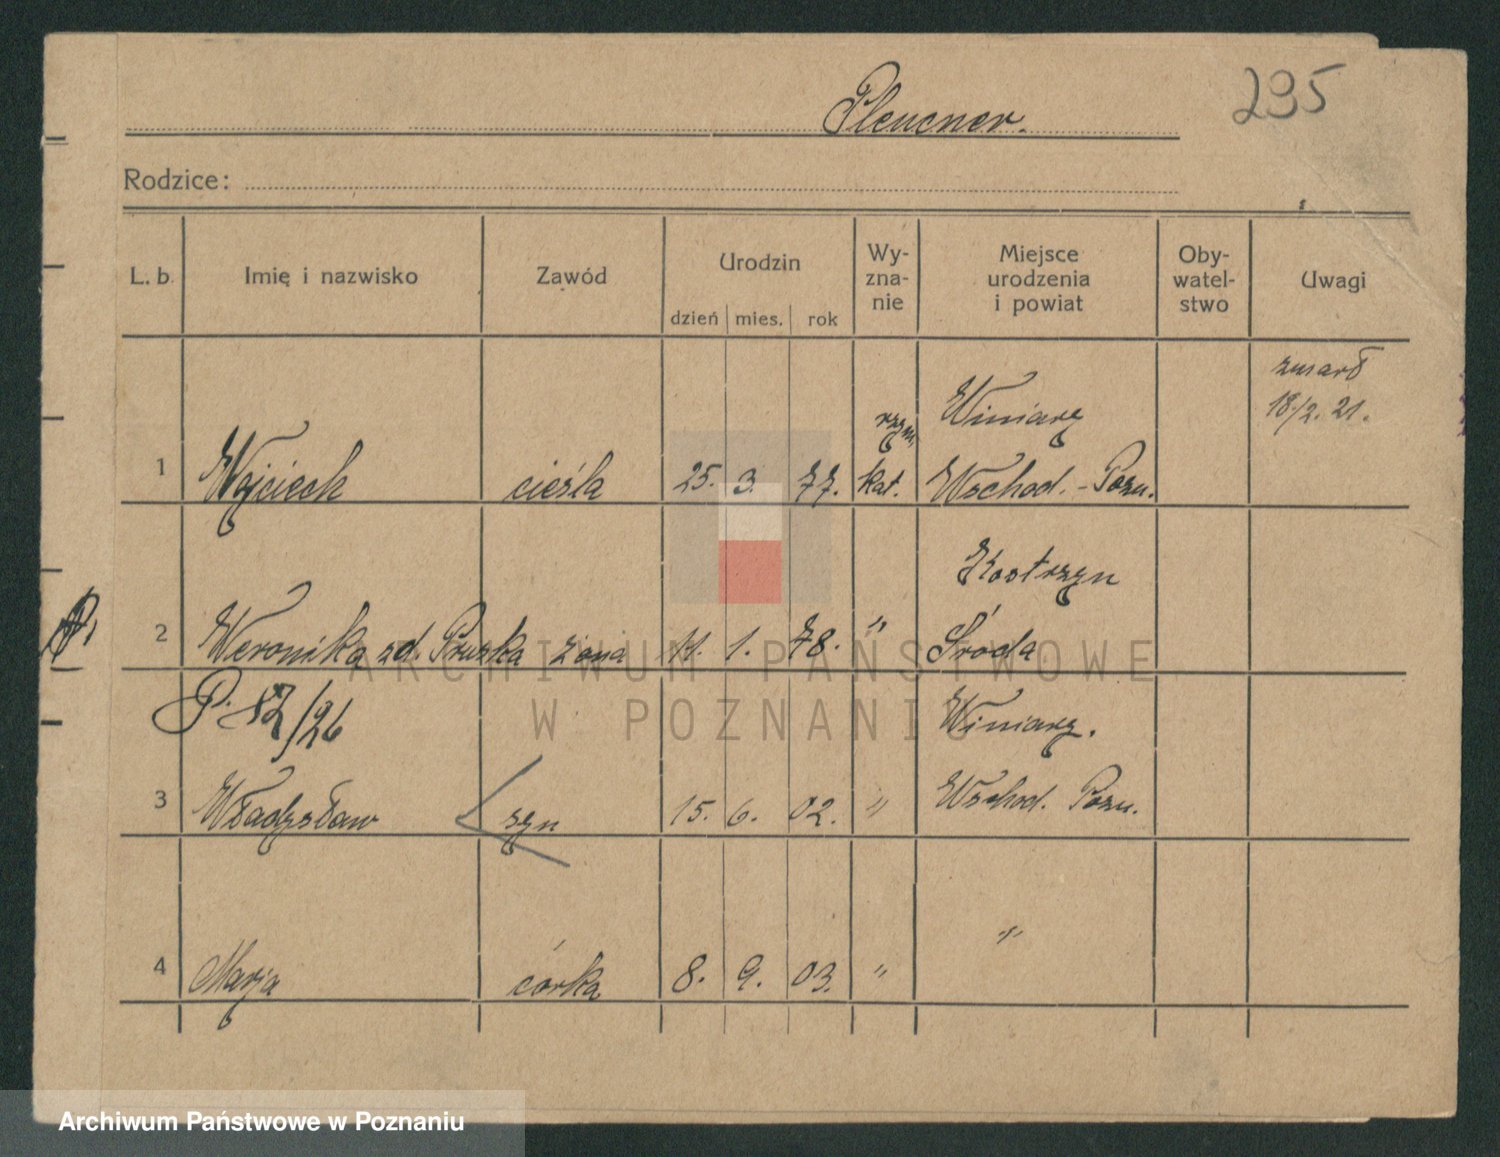 Pleucner.
295
Rodzice:
L. b. Imię i nazwisko Zawód Urodzin Wy-zna-nie Miejsce urodzenia i powiat Oby-watel-stwo Uwagi
dzień mies. rok
zmarł
18./2. 21.
Winiary
rzym.
1 Wojciech cieśla 25. 3. 77. kat. Wschod. - Pozn.
Kostrzyn
2 Weronika zd. Pruska żona 11. 1. 78. " Środa
P. 82/26 Winiary.
3 Władysław syn 15. 6. 02. " Wschod. Pozn.
"
4 Marja córka 8. 9. 03. "
ARCHIWUM PAŃSTWOWE
W POZNANIU
Archiwum Państwowe w Poznaniu